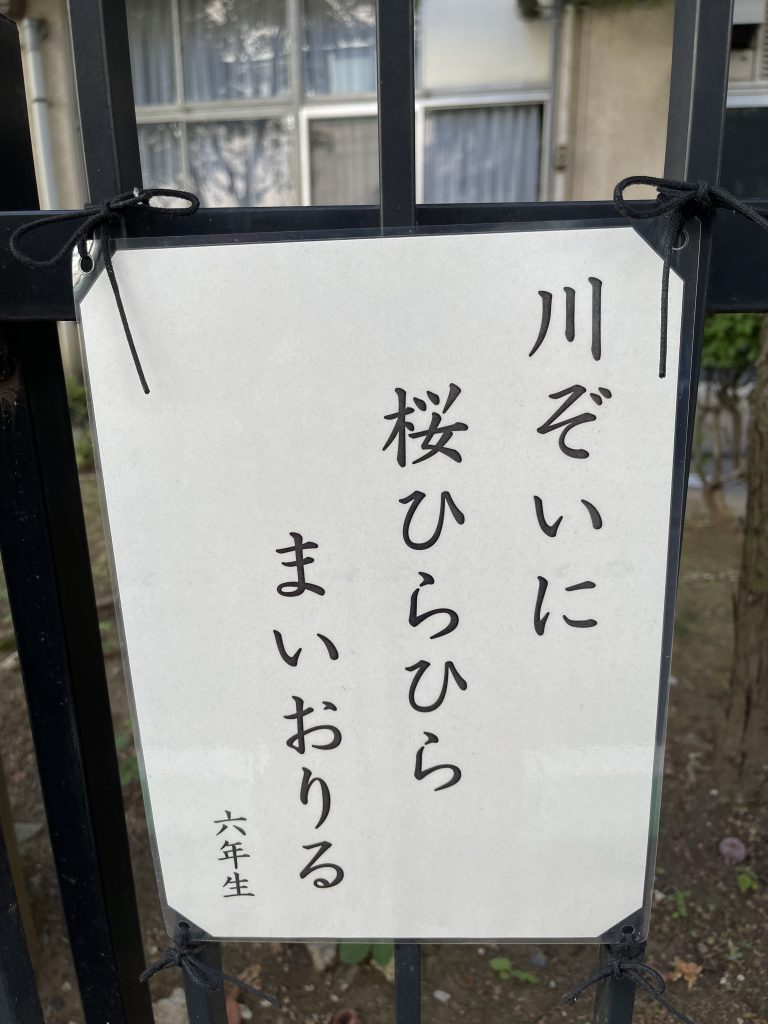 川ぞいに
桜ひらひら
まいおりる
六年生